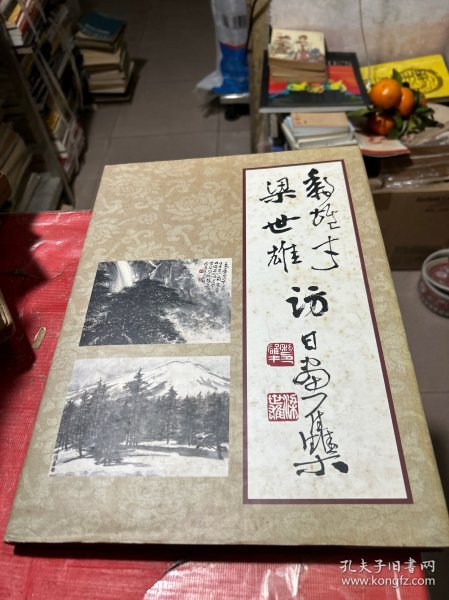 黎雄才
梁世雄
访日画集
孔夫子旧书网
www.kongfz.com